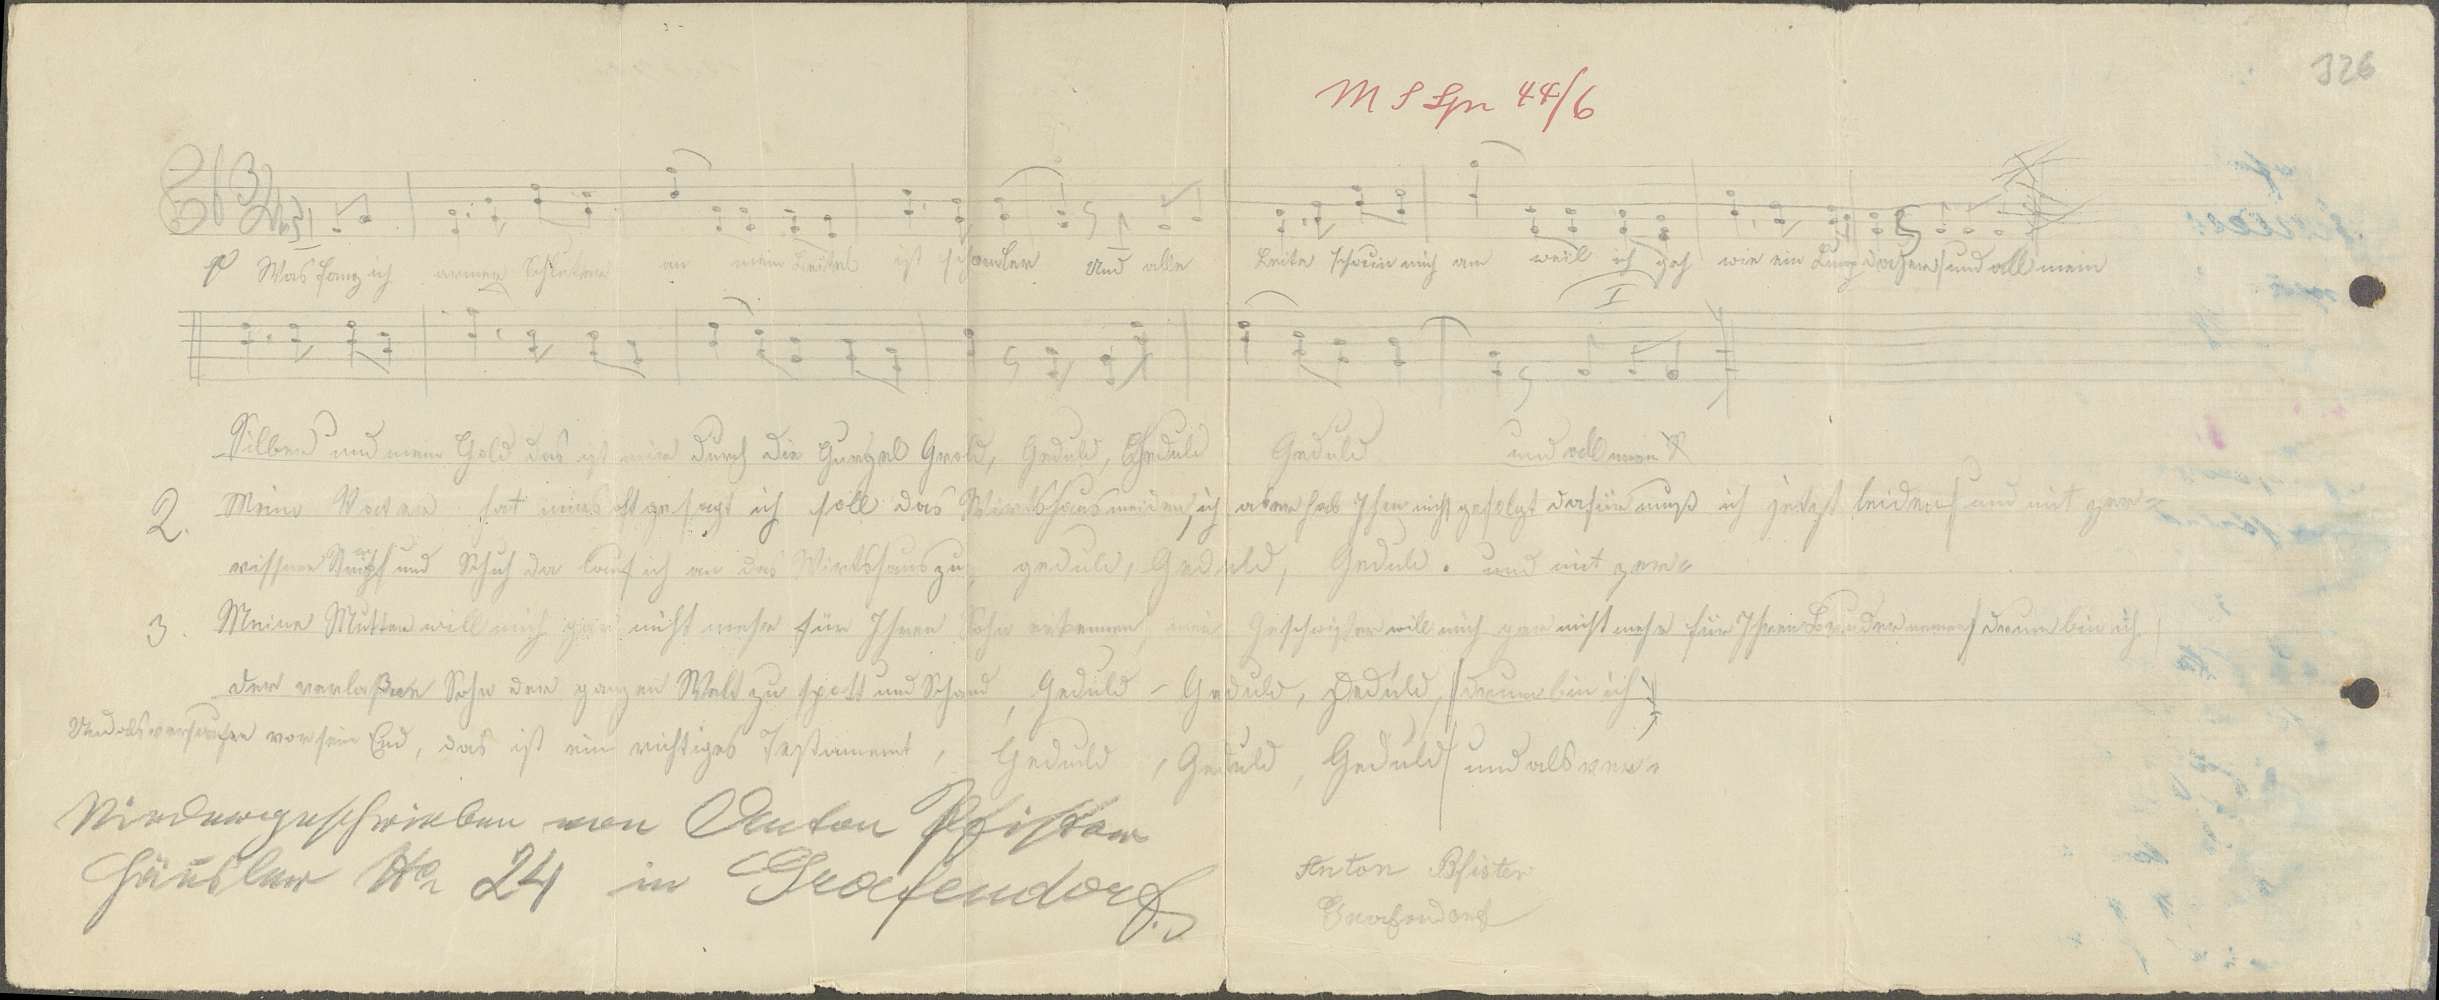 326
M S Spr 44/6
p Was fang ich armer Schlucker an mein Beitel ist schon ler Und alle Leite schauen mich an weil ich geh wie ein Lump daher und all mein
I
Silber und mein Gold das ist mir durch die Gurgel Grold, Geduld, Geduld Geduld und all mein
2. Mein Vater hat mirs oft gesagt ich soll das Wirtshaus meiden, ich aber hab Ihm nicht gefolgt dafür muß ich jetzt leiden und mit zer=
rissnen Strümpf und Schuh da lauf ich an das Wirtshaus zu, geduld, Geduld, Geduld. und mit zer=
3. Meine Mutter will mich gar nicht mehr für Ihren Sohn erkennen, mein Geschwister will mich gar nicht mehr für Ihren Bruder nennen drum bin ich
der verlaßne Sohn der ganzen Welt zu spott und Schand, Geduld - Geduld, Geduld, drum bin ich
Und als versaufen vor sein End, das ist ein richtiges Testament, Geduld, Geduld, Geduld und als ver=
Niedergeschrieben von Anton Pfister
Häusler No 24 in Graefendorf.
Anton Pfister
Graefendorf